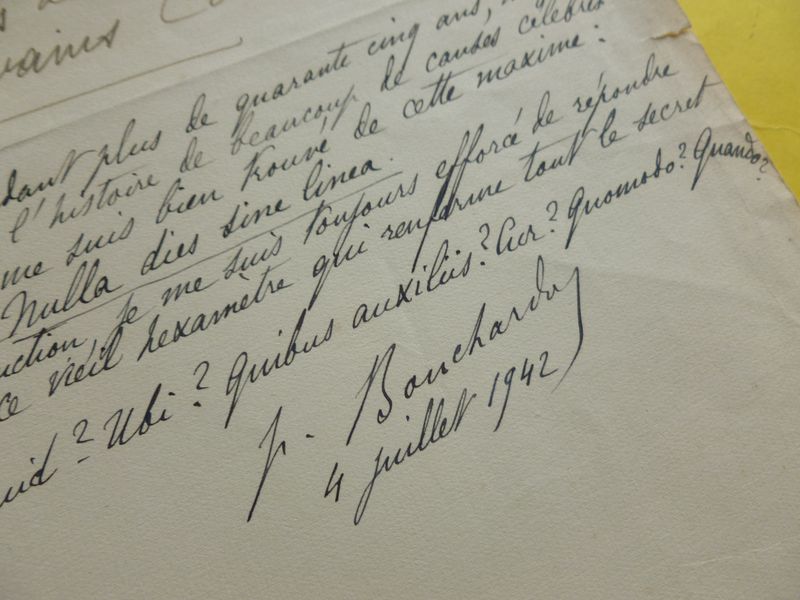 vains
dant plus de quarante cinq ans,
l'histoire de beaucoup de causes célèbres
me suis bien trouvé de cette maxime :
Nulla dies sine linea.
uction, je me suis toujours efforcé de répondre
ce vieil hexamètre qui renferme tout le secret
uid? Ubi? Quibus auxiliis? Cur? Quomodo? Quando?
P. Bouchardon
4 juillet 1942